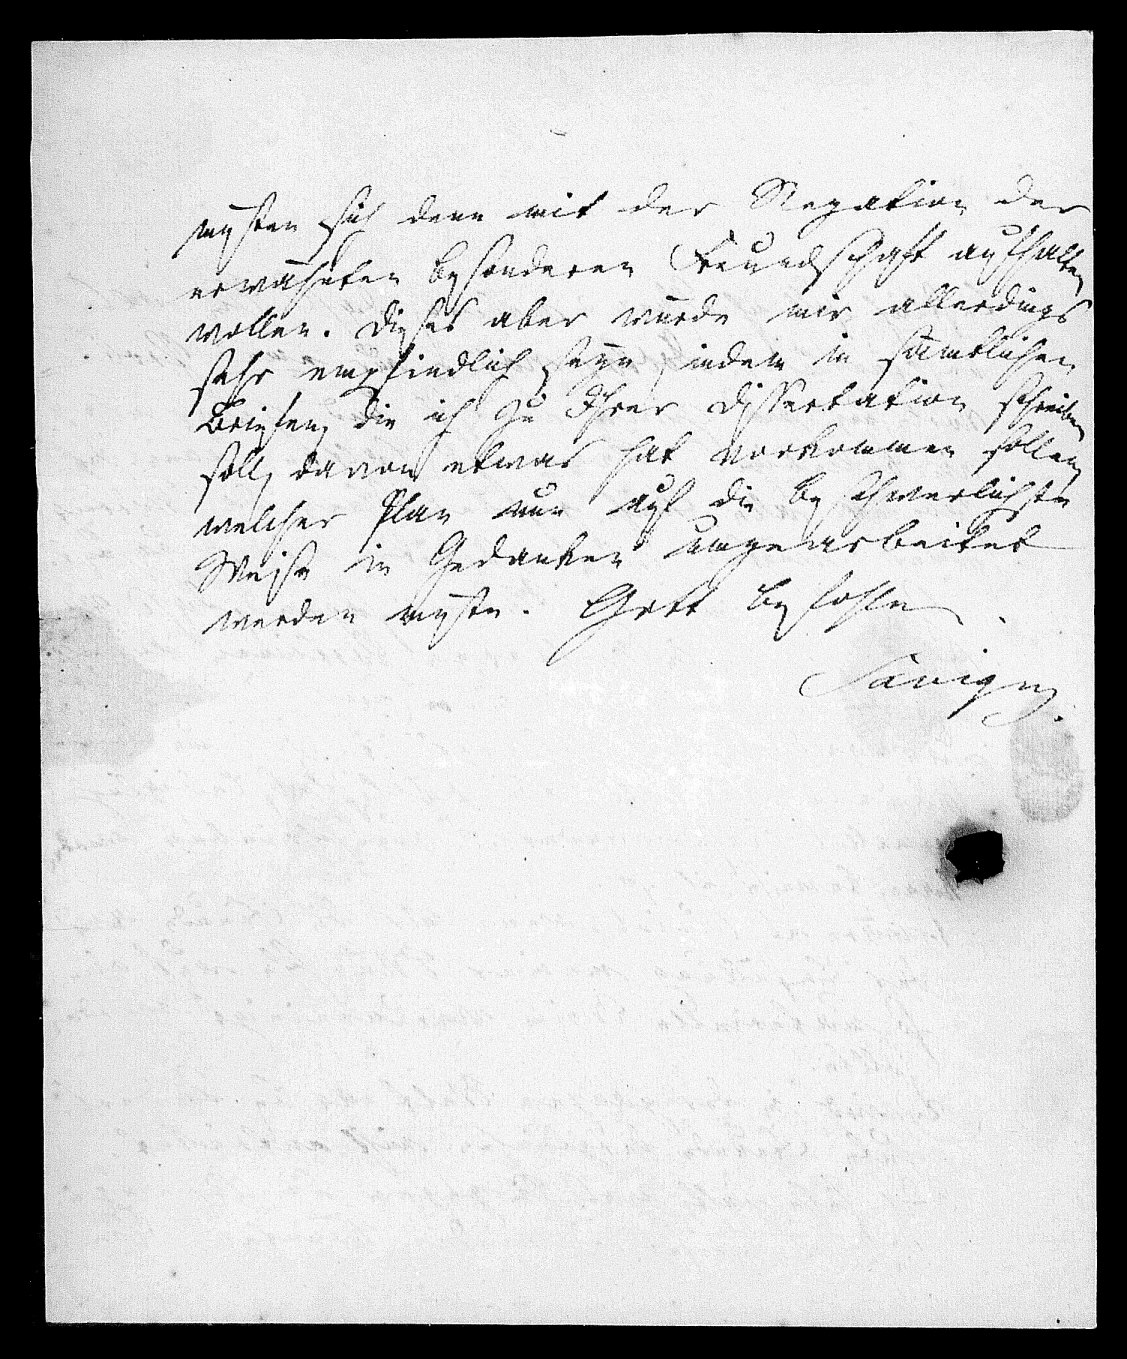 müsten sich denn mit der Negation der
erwähnten besonderen Freundschaft aufhalten
wollen. Dieses aber würde mir allerdings
sehr empfindlich seyn, indem in sämtlichen
Briefen, die ich zu Ihrer Dissertation schreiben
soll, davon etwas hat vorkommen sollen,
welcher Plan nur auf die beschwerlichste
Weise in Gedanken umgearbeitet
werden müste. Gott befohlen.
Savigny.